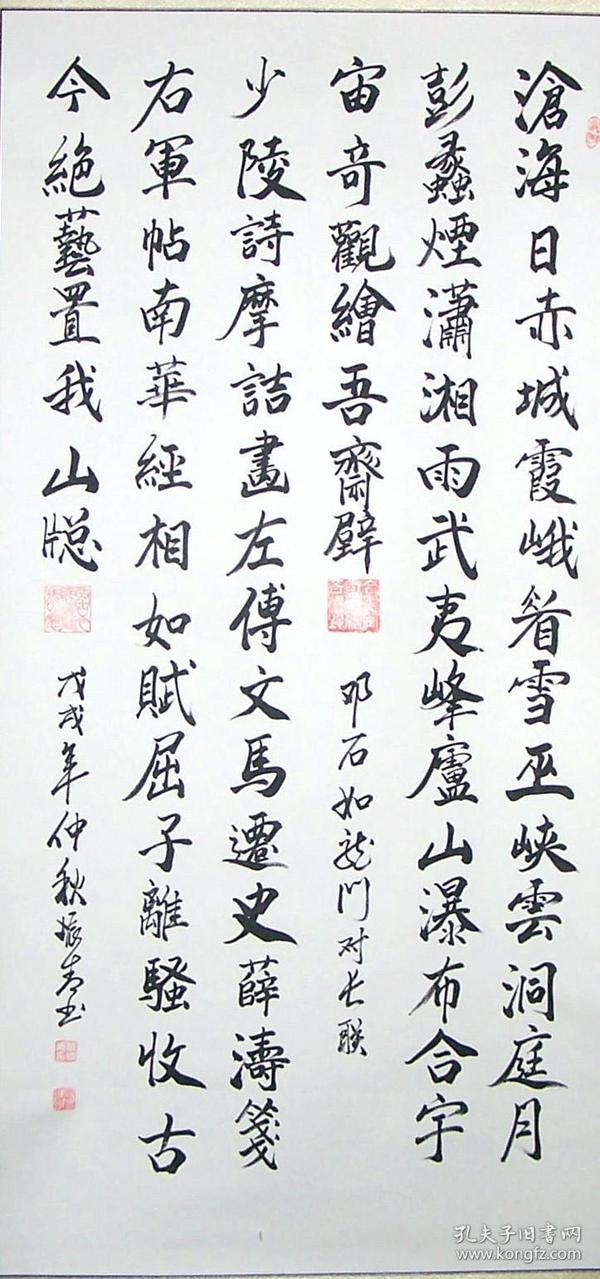 滄海日赤城霞峨眉雪巫峽雲洞庭月
彭蠡煙瀟湘雨武夷峰廬山瀑布合宇
宙奇觀繪吾齋壁
邓石如龙门对长联
少陵詩摩詰畫左傳文馬遷史薛濤箋
右軍帖南華經相如賦屈子離騷收古
今絶藝置我山牎
戊戌年仲秋
孔夫子旧书网
www.kongfz.com